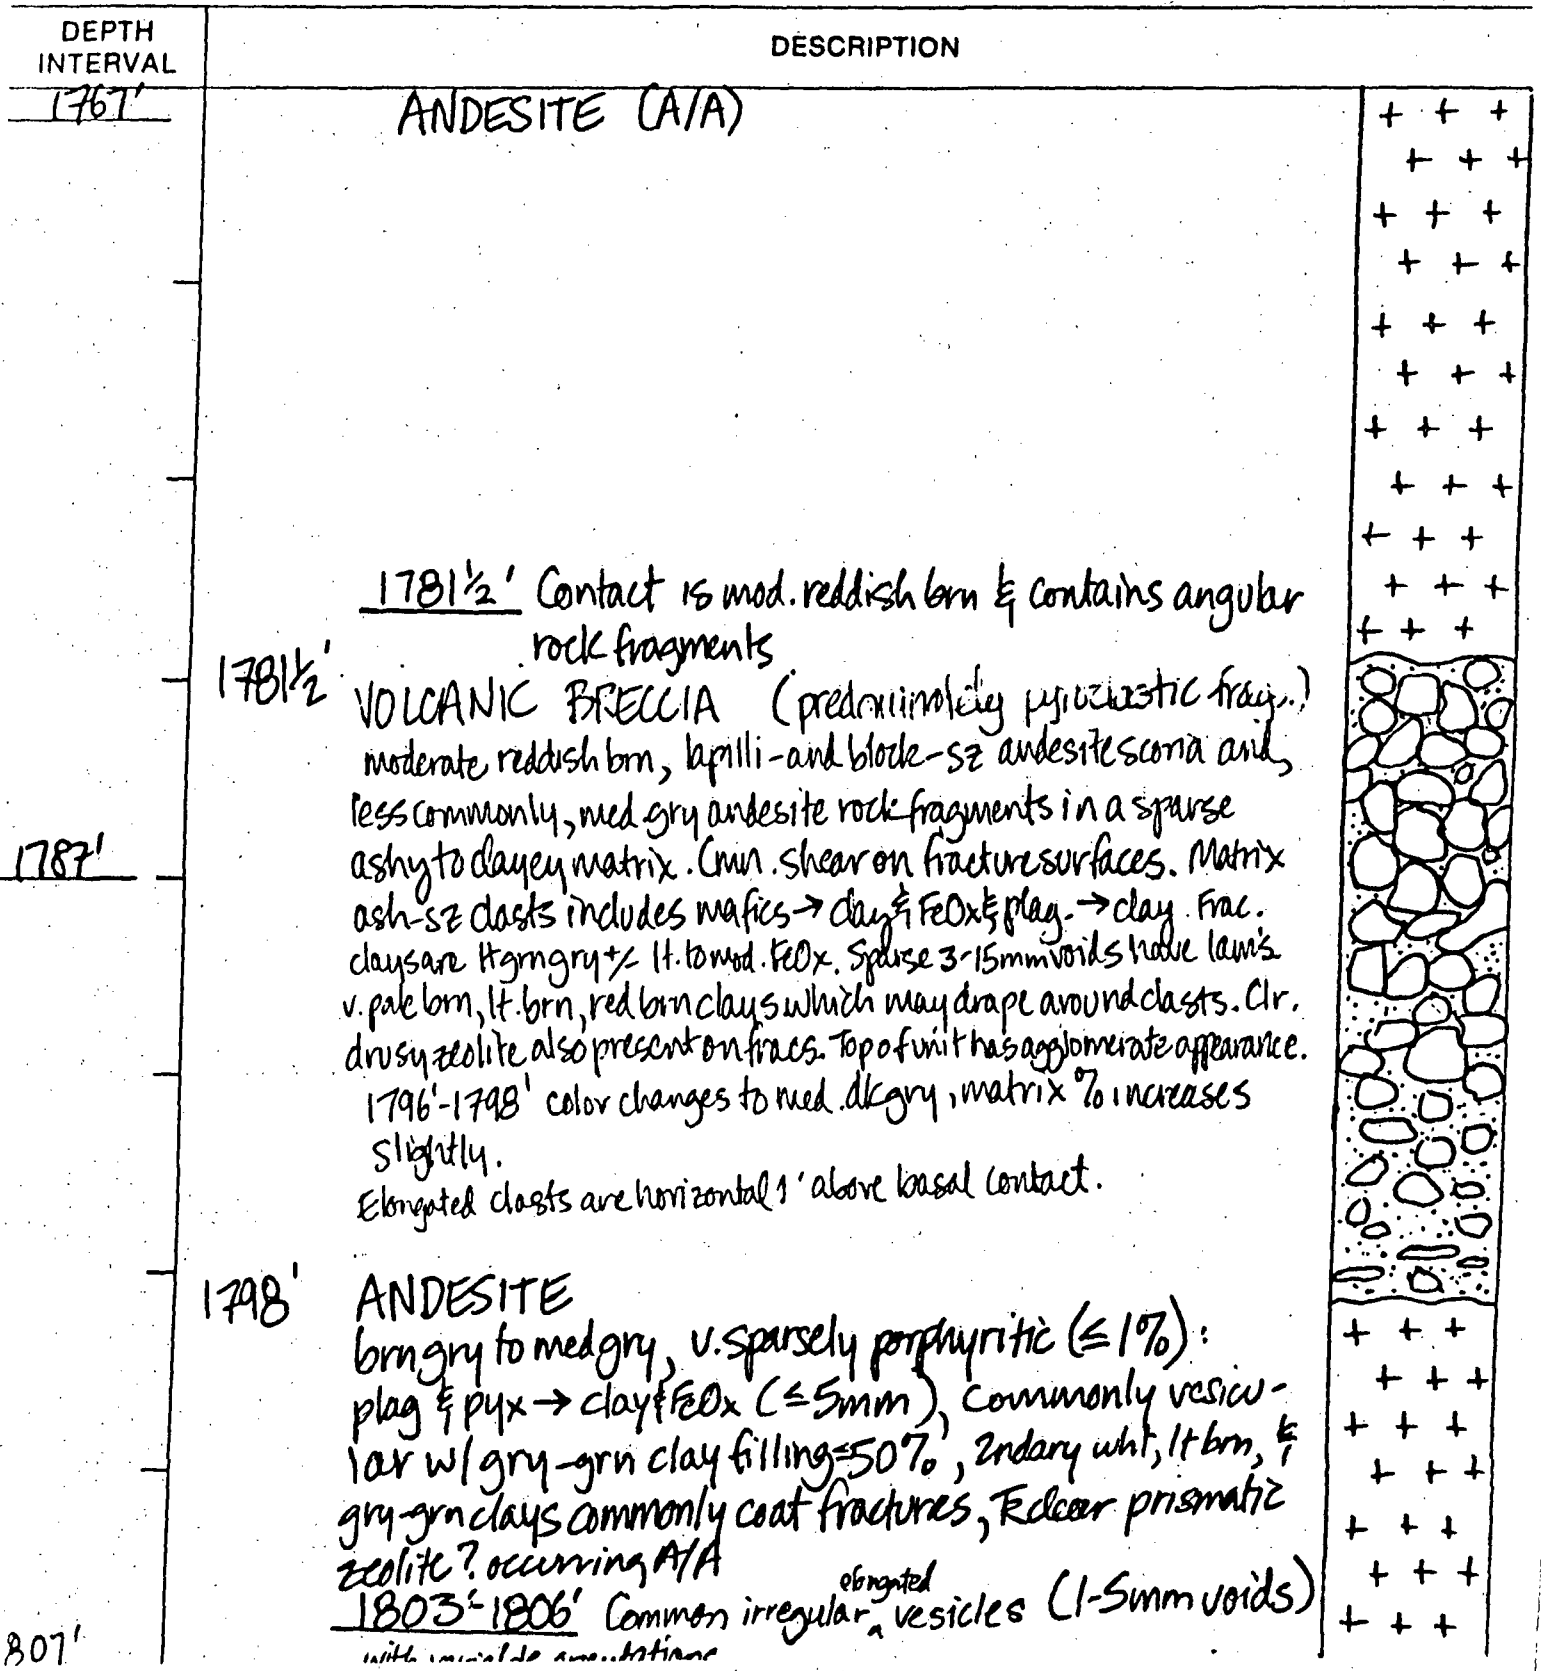 DEPTH
INTERVAL
DESCRIPTION
1767'
ANDESITE (A/A)
1781½' Contact is mod. reddish brn & contains angular
rock fragments
1781½'
VOLCANIC BRECCIA (predominately pyroclastic frag.)
moderate reddish brn, lapilli-and block-sz andesite scoria and,
less commonly, med gry andesite rock fragments in a sparse
1787'
ashy to clayey matrix. Cmn. shear on fracture surfaces. Matrix
ash-sz clasts includes mafics → clay & FeOx & plag. → clay. Frac.
clays are lt grn gry +/- lt. to mod. FeOx. Sparse 3-15mm voids have lam's
v. pale brn, lt. brn, red brn clays which may drape around clasts. Clr.
drusy zeolite also present on fracs. Top of unit has agglomerate appearance.
1796'-1798' color changes to med. dk gry, matrix % increases
slightly.
Elongated clasts are horizontal 1' above basal contact.
1798'
ANDESITE
brn gry to med gry, v. sparsely porphyritic (≤ 1%):
plag & pyx → clay & FeOx (≤5mm), Commonly vesicu-
lar w/ gry-grn clay filling ≤50%, 2ndary wht, lt brn, &
gry-grn clays commonly coat fractures, Tr clear prismatic
zeolite? occurring A/A
1803'-1806' Common irregular elongated vesicles (1-5mm voids)
807'
with